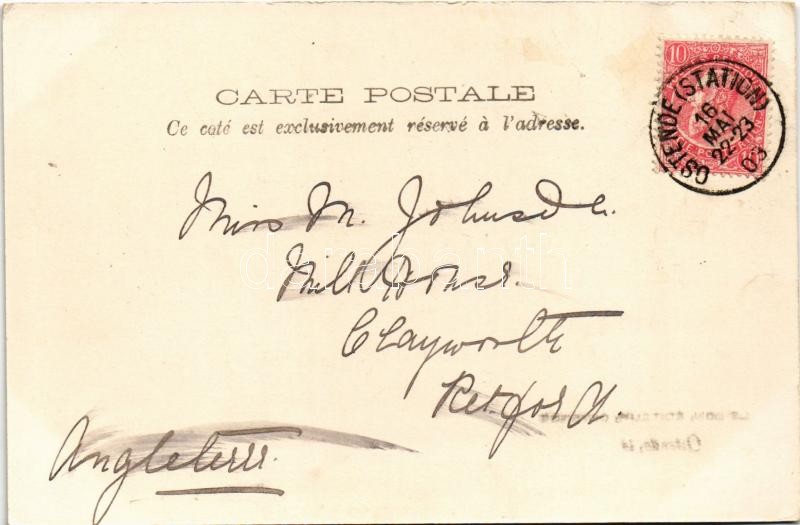 10
OSTENDE (STATION)
16
MAI
22-23
03
CARTE POSTALE
Ce coté est exclusivement réservé à l'adresse.
Miss M. Johnson.
Mill House.
Clayworth
Retford.
Angleterre.